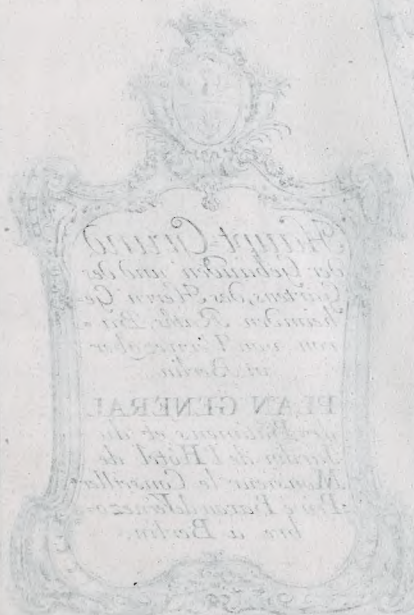 Haupt-Grund
der Gebäuden und des
Gartens, des Herrn Ge-
heimden Raths, Ba-
ron von Vernezober
in Berlin.
PLAN GENERAL
des Bâtimens et du
Jardin de l'Hôtel de
Monsieur le Conseiller
Privé Baron de Vernezo-
bre a Berlin.